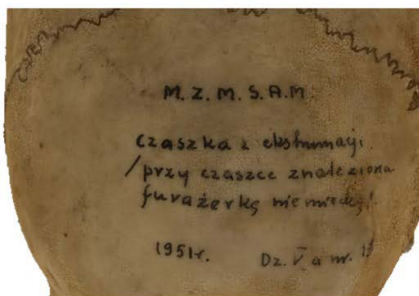 M.Z.M.S.A.M
Czaszka z ekshumacji.
/przy czaszce znaleziona
furażerkę niemiecką/.
1951r. Dz. V a nr.